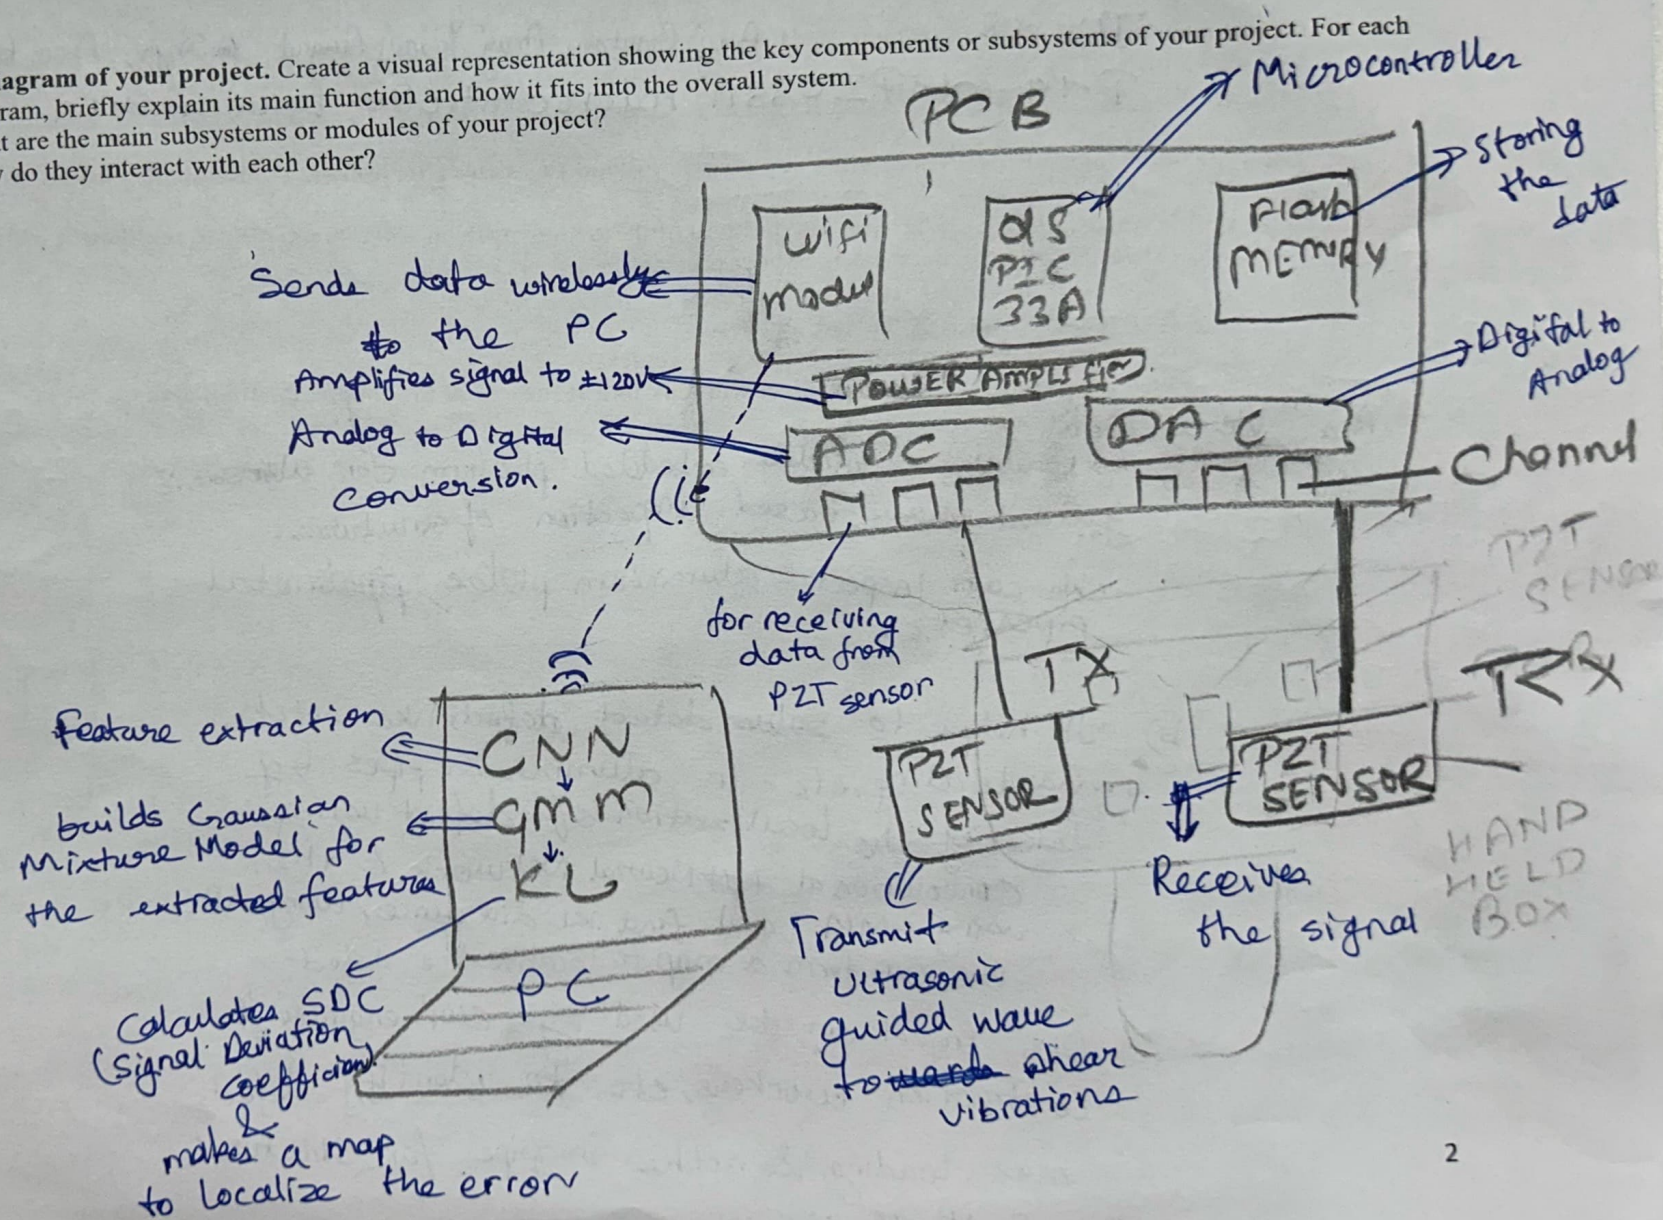 agram of your project. Create a visual representation showing the key components or subsystems of your project. For each
ram, briefly explain its main function and how it fits into the overall system.
t are the main subsystems or modules of your project?
do they interact with each other?
PCB
Microcontroller
Storing
the
data
Wifi
modul
PIC
33A
Flash
MEMORY
Sends data wirelessly
to the PC
Amplifies signal to ±120V
POWER AMPLIFIER
Digital to
Analog
Analog to Digital
Conversion.
ADC
DAC
Channel
for receiving
data from
PZT sensor
PZT
SENSOR
TX
TRx
Feature extraction
CNN
builds Gaussian
Mixture Model for
the extracted features
GMM
KL
PZT
SENSOR
PZT
SENSOR
HAND
HELD
BOX
Receives
the signal
Transmit
Ultrasonic
guided wave
to shear
vibrations
PC
Calculates SDC
(Signal Deviation
coefficient)
&
makes a map
to localize the error
2